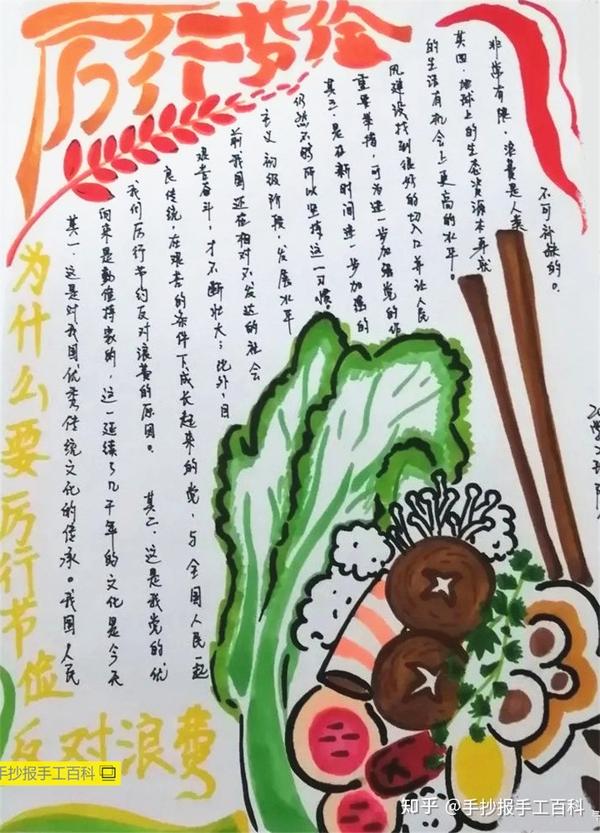 厉行节俭
为什么要厉行节俭
反对浪费
其一:这是对我国优秀传统文化的传承。我国人民
向来是勤俭持家的,这一延续了几千年的文化是今天
我们厉行节约反对浪费的原因。 其二、这是我党的优
良传统,在艰苦的条件下成长起来的党,与全国人民一起
艰苦奋斗,才不断壮大;此外,目
前我国还在相对不发达的社会
主义初级阶段,发展水平
仍然不够所以坚持这一习惯。
其三:是在新时间进一步加强的
重要举措,可为进一步加强党的作
风建设找到很好的切入口并让人民
的生活有机会上更高的水平。
其四:地球上的生态资源本身就
非常有限,浪费是人类
不可补救的。
手抄报手工百科
知乎 @手抄报手工百科